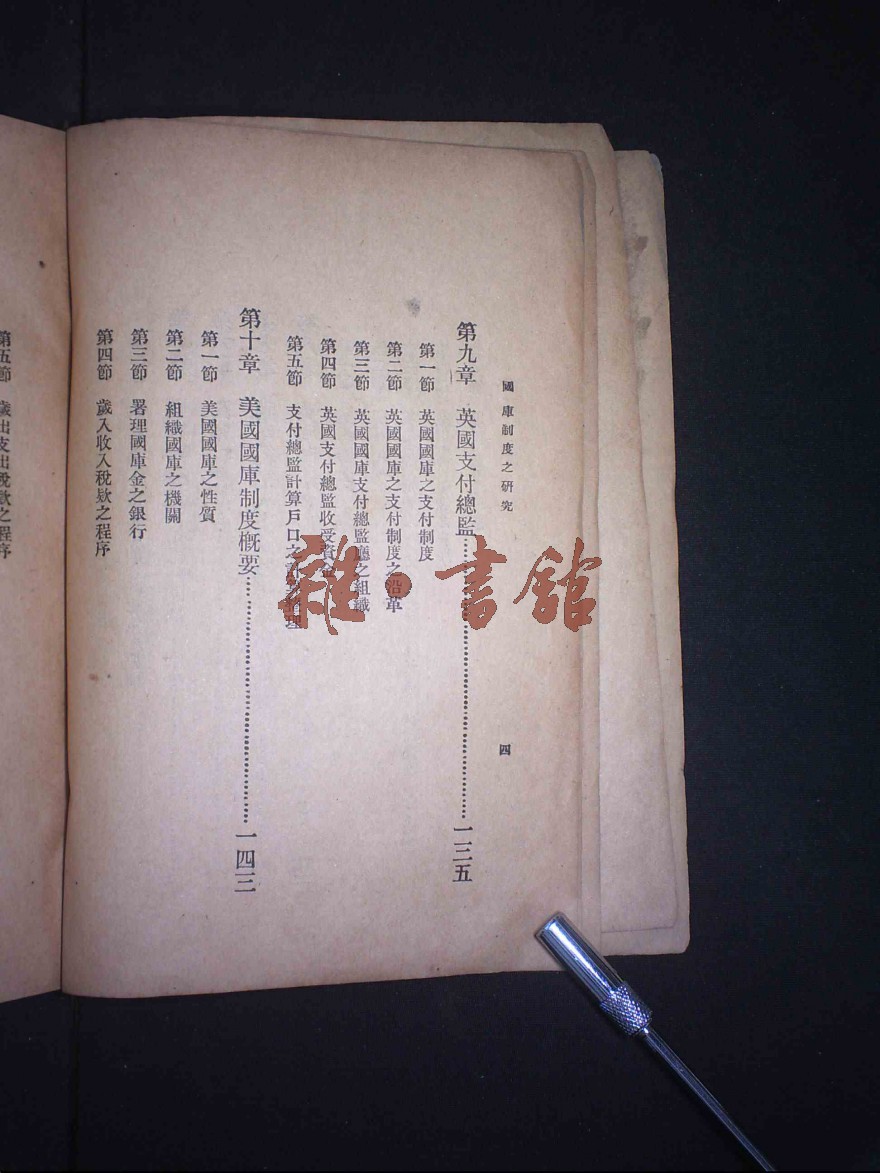 國庫制度之研究
四
第九章 英國支付總監………一三五
第一節 英國國庫之支付制度
第二節 英國國庫之支付制度之沿革
第三節 英國國庫支付總監廳之組織
第四節 英國支付總監收受資金
第五節 支付總監計算戶口之
第十章 美國國庫制度概要………一四三
第一節 美國國庫之性質
第二節 組織國庫之機關
第三節 署理國庫金之銀行
第四節 歲入收入稅款之程序
第五節 歲出支出稅款之程序
雜·書館